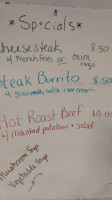 *Specials*
Cheesesteak 8.50
w/ French fries or onion rings
Steak Burrito 8.50
w/ guacamole, salsa + sour cream
Hot Roast Beef 10.00
w/ mashed potatoes + salad
Mushroom Soup
Vegetable Soup